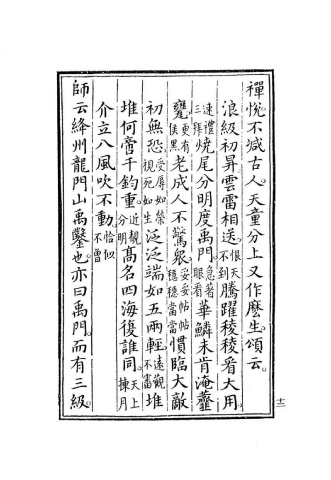 禪悅不減古人。天童分上又作麼生。頌云。
浪級初昇雲雷相送。恨天不到騰躍稜稜看大用。
速禮三拜燒尾分明度禹門。急著眼看華鱗未肯淹虀
甕。更有侯黑老成人不驚眾。妥妥帖帖穩穩當當慣臨大敵
初無恐。受辱如榮視死如生泛泛端如五兩輕。遠觀不審堆
堆何啻千鈞重。近觀分明高名四海復誰同。天上揀月
介立八風吹不動。恰似不曾
師云絳州龍門山禹鑿也。亦曰禹門。而有三級。
十二